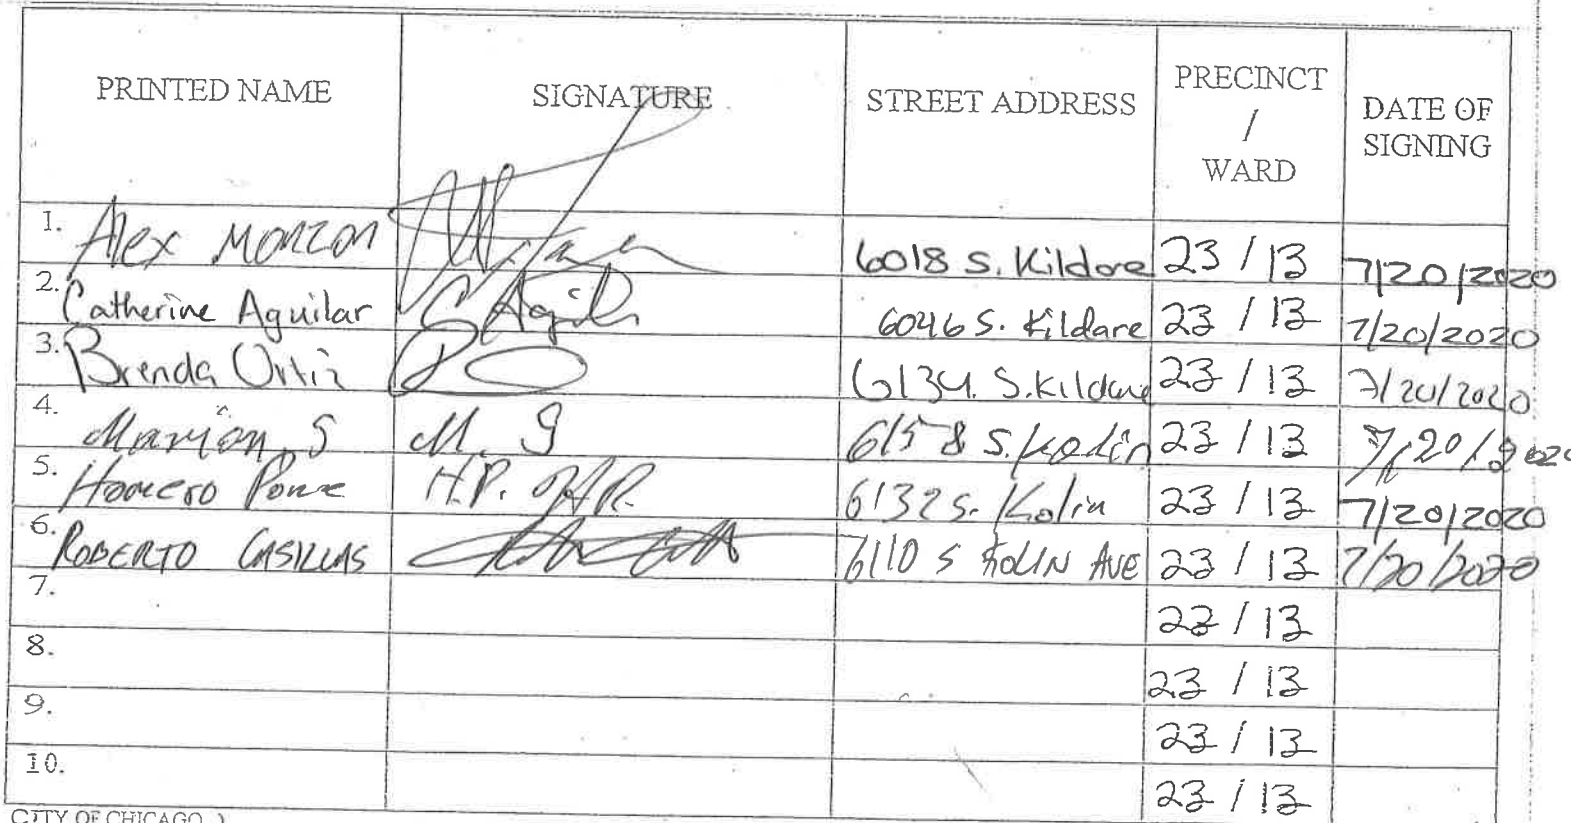 PRINTED NAME SIGNATURE STREET ADDRESS PRECINCT / WARD DATE OF SIGNING
1. Alex Monzon 6018 S. Kildare 23 / 13 7/20/2020
2. Catherine Aguilar C Aguil 6046 S. Kildare 23 / 13 7/20/2020
3. Brenda Ortiz BO 6134 S. Kildare 23 / 13 7/20/2020
4. Marion S M. S 6158 S. Kolin 23 / 13 7/20/2020
5. Homero Ponce H.P. 6132 S. Kolin 23 / 13 7/20/2020
6. ROBERTO CASILLAS 6110 S KOLIN AVE 23 / 13 7/20/2020
7. 23 / 13
8. 23 / 13
9. 23 / 13
10. 23 / 13
CITY OF CHICAGO )